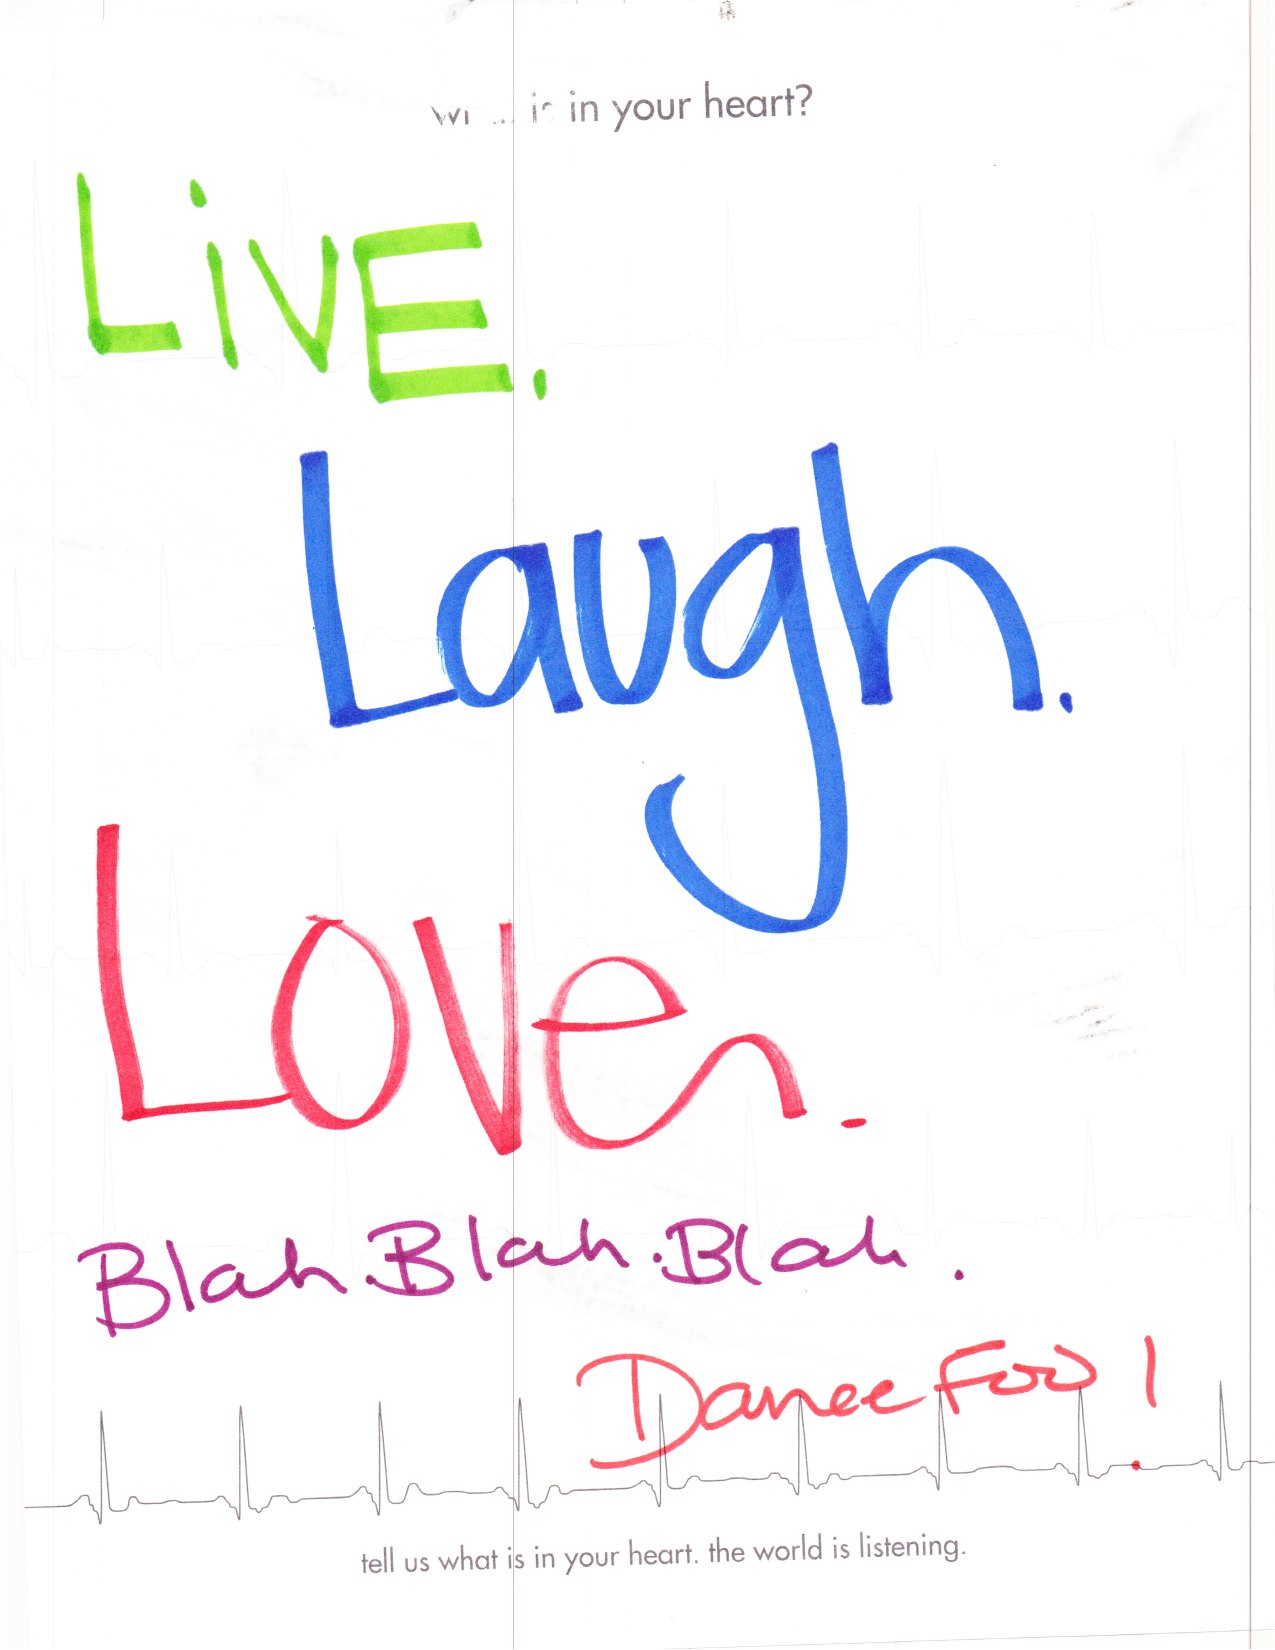 what is in your heart?
LiVE.
Laugh.
Love.
Blah. Blah. Blah.
Danee Foo!
tell us what is in your heart. the world is listening.